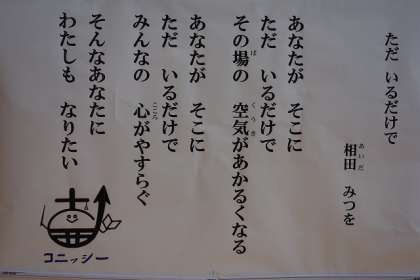 ただ いるだけで
相田 みつを
あいだ
あなたが そこに
ただ いるだけで
その場の 空気があかるくなる
ば くうき
あなたが そこに
ただ いるだけで
みんなの 心がやすらぐ
こころ
そんなあなたに
わたしも なりたい
コニッシー